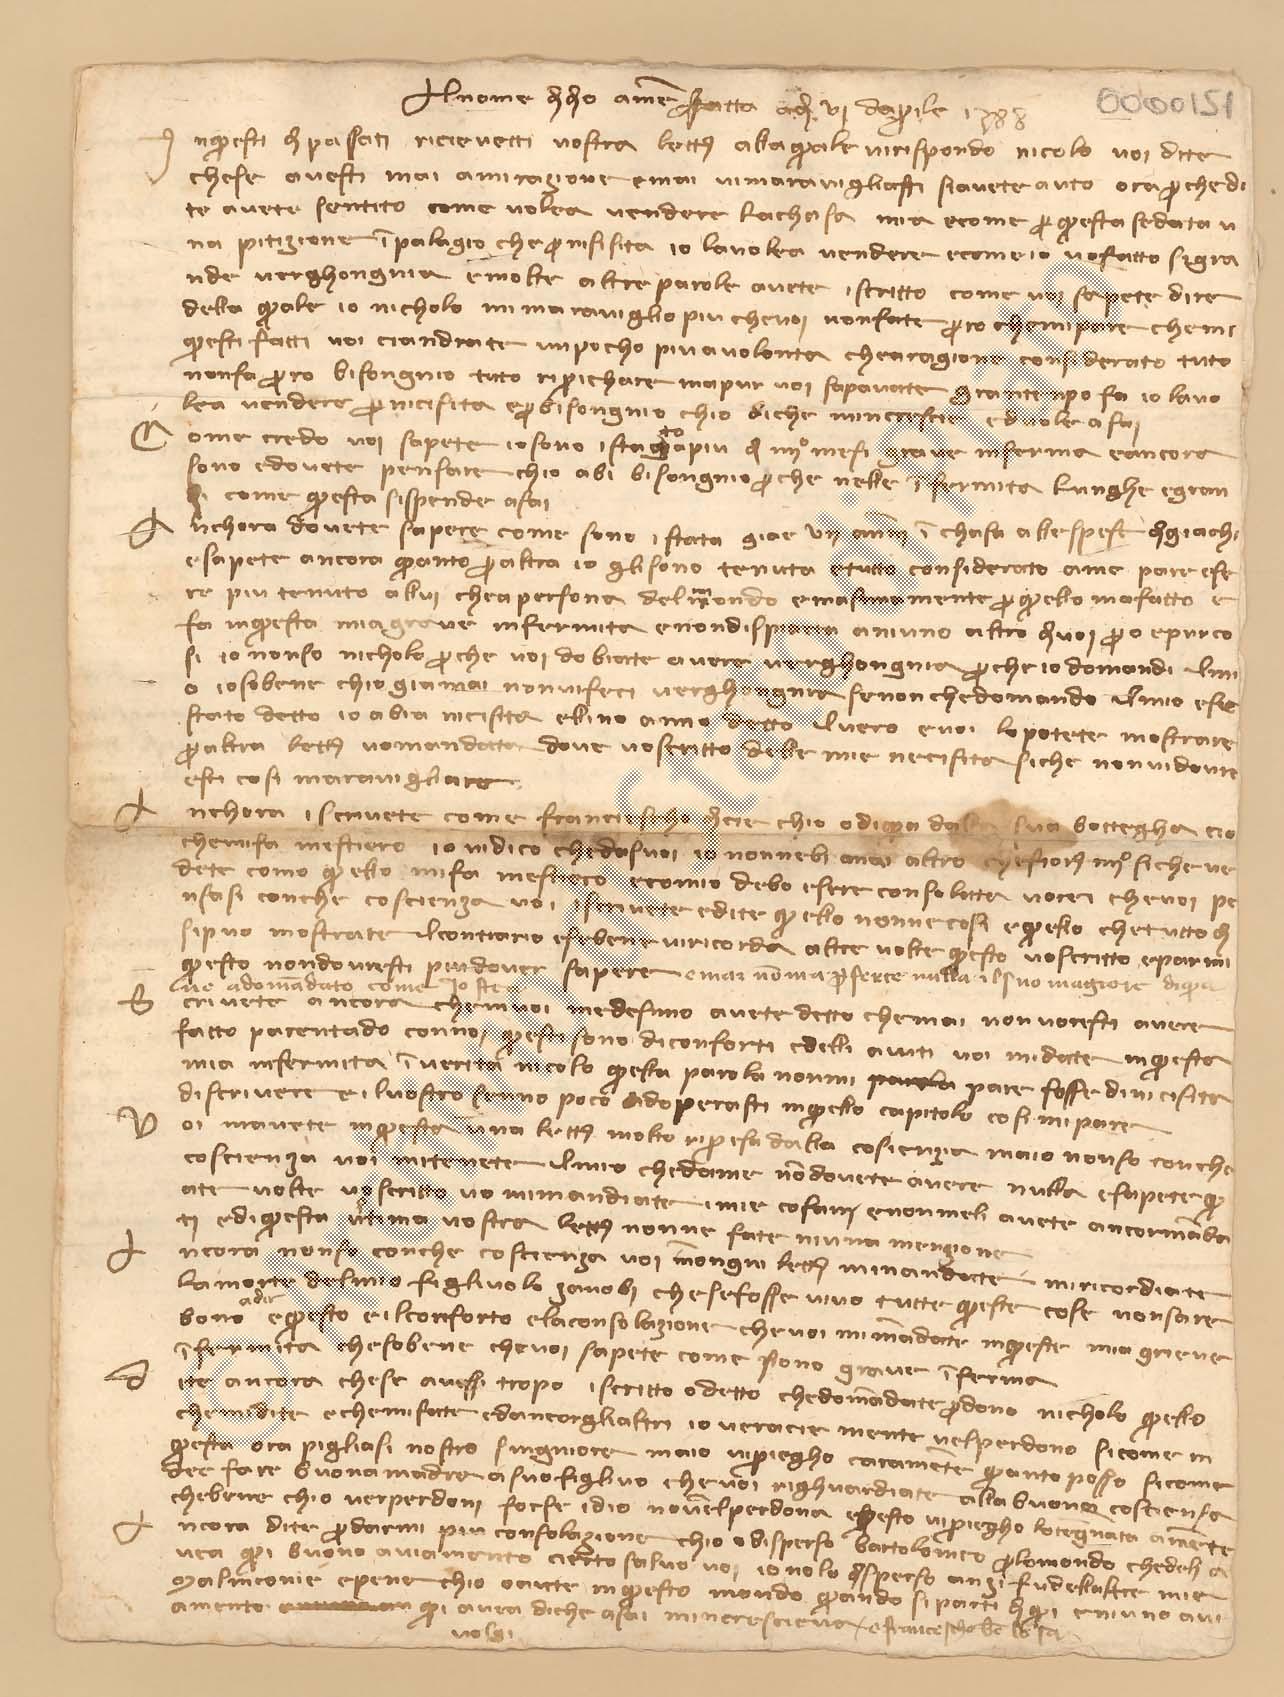 Al nome di dio amē fatta adj vj daprile 1388
6000151
Jnqesti dj passati ricievetti vostra lettª alla quale virispondo nicolo voi dite
chese avesti mai amirazione emai vimaravigliasti siavete auto ora p̄chedi
te avete sentito come volea vendere lachasa mia ecome p̄ qesta sedata u
na pitizione ī palagio che p̄ nisisita io lavolea vendere ecome io vofatto sigra
nde verghongnia emolte altre parole avete iscritto come voi sapete dire
della qale io nicholo mi maraviglio piu chevoi nonfate p̄ro chemipare chemi
qesti fatti voi ciandrate unpocho piu avolonta chearagione considerato tuto
nonfa p̄ro bisongnio tuto ripichare mapur voi sapavatte grantenpo fa io lavo
lea vendere p̄ nicisita ep̄ bisongnio chio diche mincrescie eduole asai
Come credo voi sapete iosono istata to apiu di iiijº mesi grave inferma eancora
sono edovete pensare chio abi bisongnio p̄che nelle īfermita lunghe egran
di come qesta sispende asai
Anchora dovete sapere come sono istata giae vij anni ī chasa allespese
esapete ancora qanto p̄ altra io glisono tenuta etutto considerato ame pare ese
re piu tenuto allui cheapersona delmondo emasimamente p̄ qello mafatto e
fa inqesta mia grave infermita enondispiacca aniuno altro voi p̄o epurco
si io nonso nicholo p̄che voi dobiatte avere verghongnia p̄che io domandi ilmi
o iosobene chio giamai nonvifeci verghongnia senonchedomando ilmio esie
stato detto io abia nicisita ellino anno detto ilvero evoi lopotete mostrare
p̄ altra lettª vomandata dove voscritto delle mie necisita siche nonvidovre
esti cosi maravigliare
Anchora iscrivete come franciescho dicie chio odiqa dalla sua bottegha cio
chemifa mestiero io vidico chedasuoi io nonnebi mai altro che fiorⁱ iiijº siche ve
dete como qello mifa mestiero ecomio debo esere consolatta vorei chevoi pe
nsasi conche coscienza voi iscrivete edite qello nonne cosi eqello chetutto di
sipuo mostrare ilcontrario esebene viricorda altre volte qesto voscritto eparmi
qesto nondovresti piudover sapere emai nōma p̄ferce nulla ilsuo magiore diqa
lue adomādato come io ste
Scrivete ancora chemvoi medesimo avete detto chemai nonvoresti avere
fatto parentado connoi qesti sono diconforti edelli aiuti voi midatte inqesta
mia infermita ī verita nicolo qesta parola nonmi pare fosse dinicisita
discrivere e ilvostro senno poco adoperasti inqello capitolo cosi mipare
Voi mavete inqesta una lettª molto ripresa dalla cosienza maio nonso conche
coscienza voi mitenete ilmio chedame nōdovete avere nulla esapete q
ate volte voscritto vo mimandiate imie cofani enonmeli avete ancormāda
ti ediqesta utima vostra lettª nonne fate niuna menzione
Ancora nonso conche coscienza voi īnongni lettª mimandatte miricordiate
lamorte delmio figliuolo zanobi chesefosse vivo tutte qeste cose nonsare
bono adir eqesto eilconforto elaconsolazione chevoi mimādate inqeste mia grieve
īfermita chesobene chevoi sapete come sono grave īferma
Dite ancora chese avessi tropo iscritto odetto chedomādate p̄dono nicholo qello
chemidite echemifatte edancorglialtri io veracie mente velperdono sicome in
qesta ora pigliasi nostro singniore maio viprieghо caramēte qanto posso sicome
dee fare buonamadre asuofigliuo chevoi righuardiate alla buona coscienza
chebene chio verperdoni forse idio novelperdona eqesto viprieghо lotegnata amēte
Ancora dite p̄darmi piu consolazione chio odisperso bartolomeo p̄lomondo chedeli a
vea qi buono aviamento cierto salvo voi io nolo disperso anzi fudellaltre mie
malinconie epene chio oaute inqesto mondo qando siparti diqi eniuno avi
amento qi avea diche asai mincresceva efranceschо be lo sa
volgi